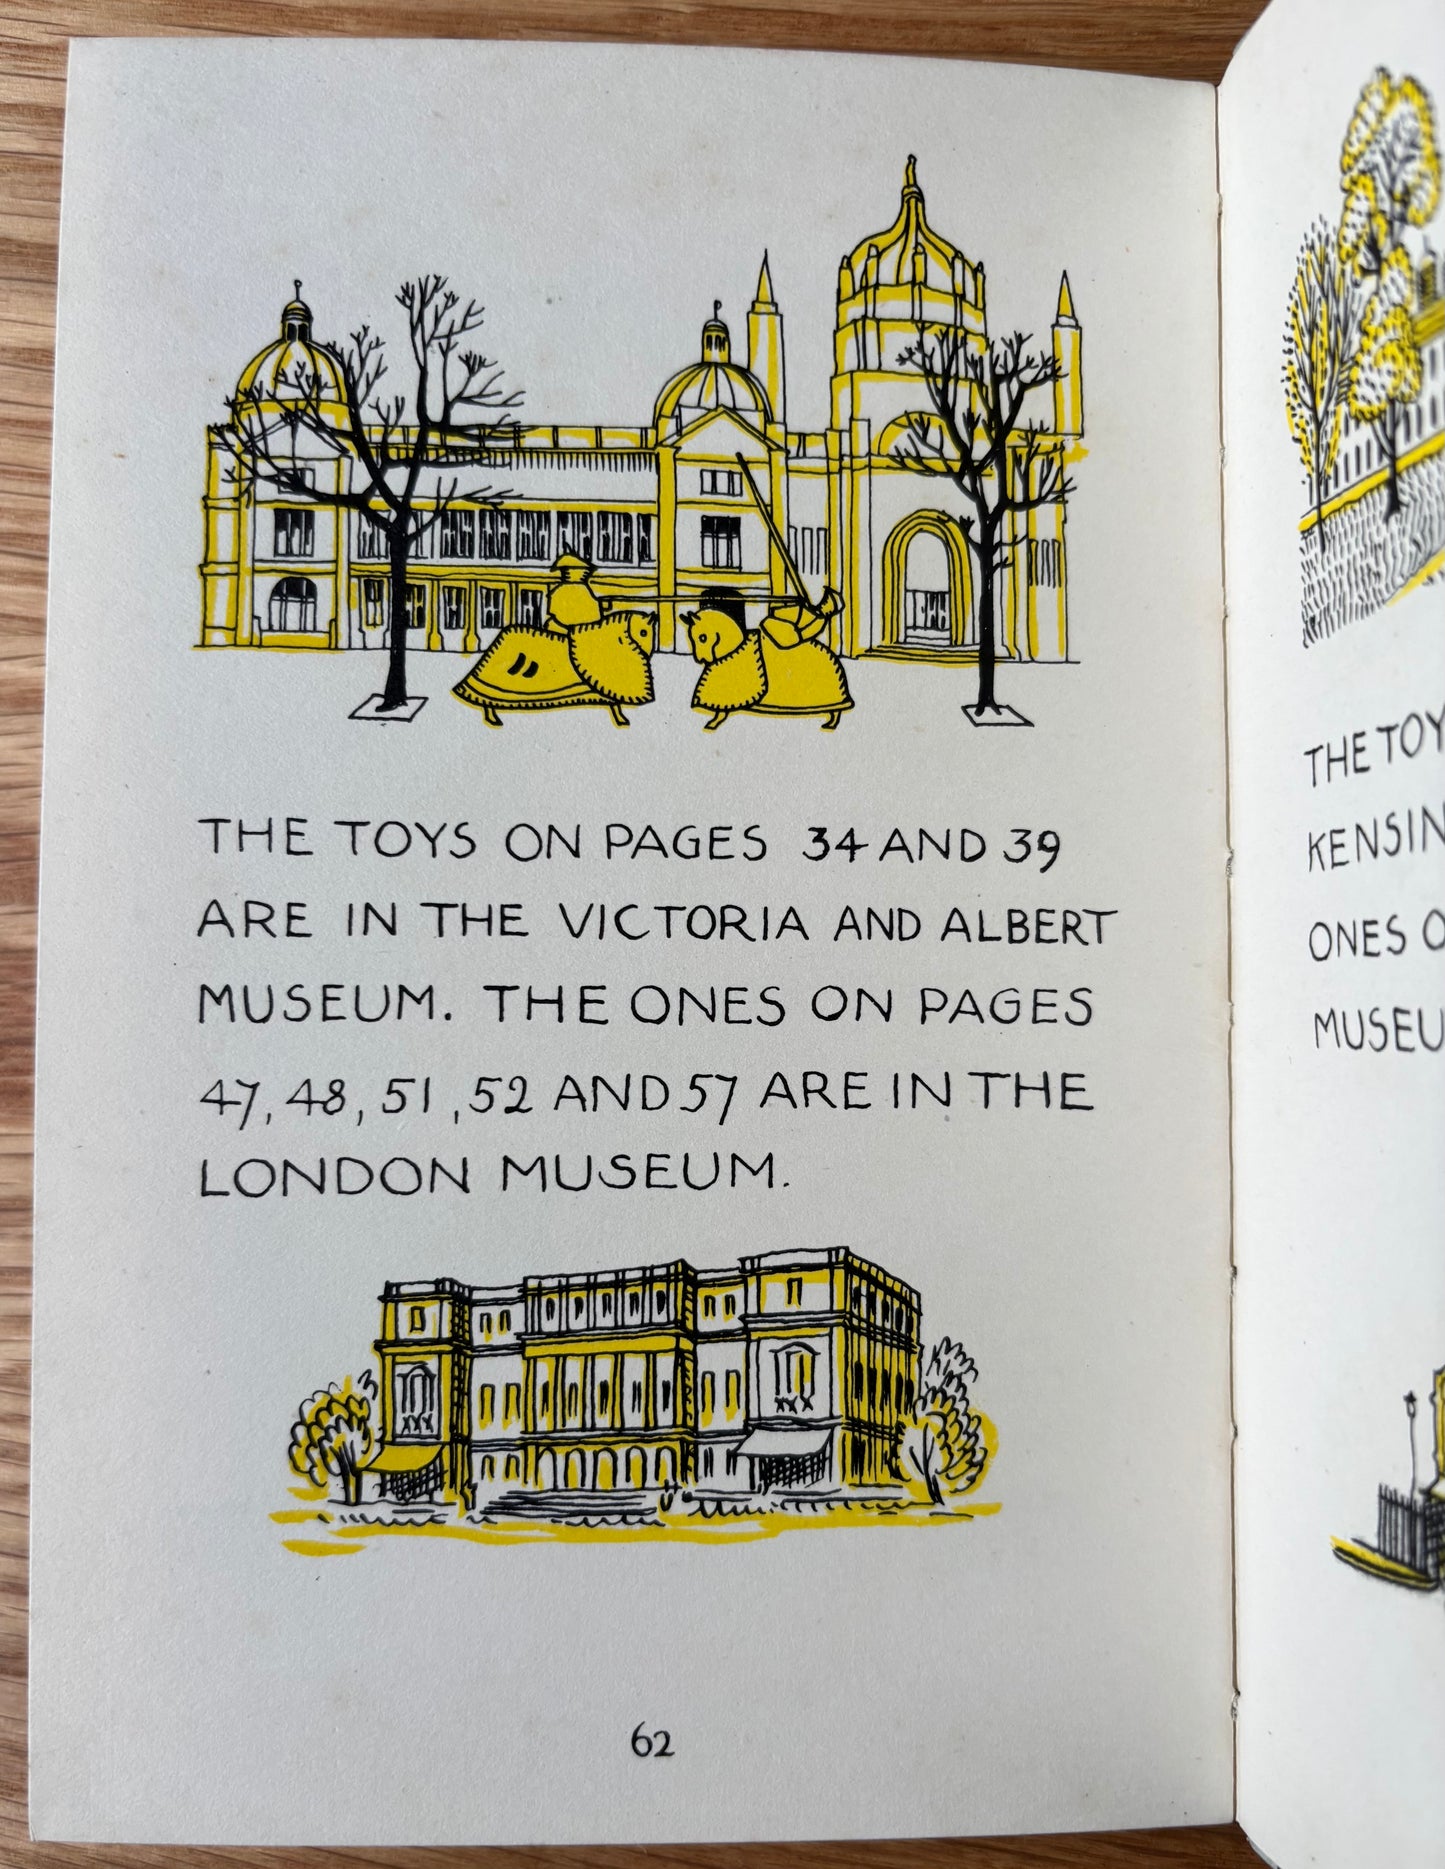 THE TOYS ON PAGES 34 AND 39
ARE IN THE VICTORIA AND ALBERT
MUSEUM. THE ONES ON PAGES
47, 48, 51, 52 AND 57 ARE IN THE
LONDON MUSEUM.
62
THE TOY
KENSIN
ONES O
MUSEU